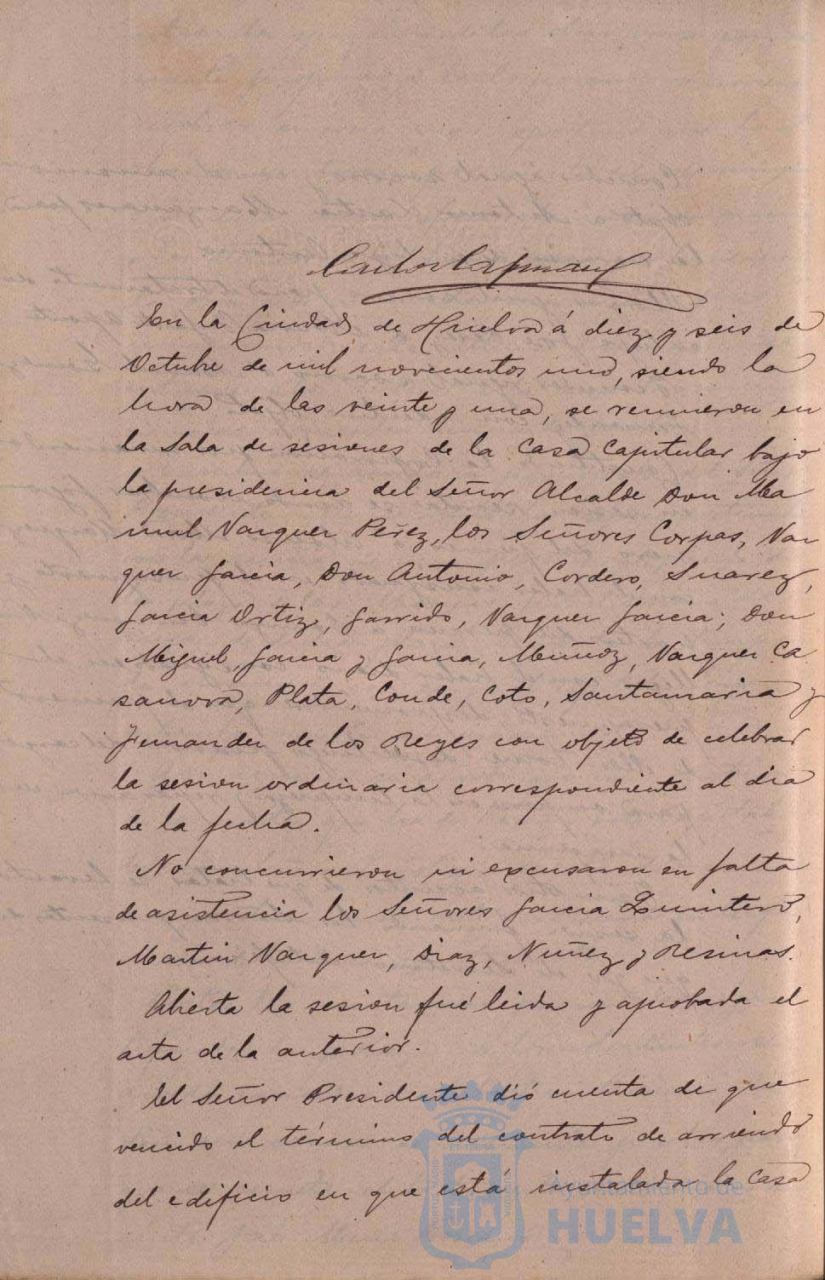 En la Ciudad de Huelva á diez y seis de
Octubre de mil novecientos uno, siendo la
hora de las veinte y una, se reunieron en
la Sala de sesiones de la Casa Capitular bajo
la presidencia del Señor Alcalde Don Ma
nuel Vazquez Perez, los Señores Corpas, Vaz
quez Garcia, Don Antonio, Cordero, Suarez,
Garcia Ortiz, Garrido, Vazquez Garcia; Don
Miguel, Garcia y Garcia, Muñoz, Vazquez Ca
sanova, Plata, Conde, Coto, Santamaria y
Fernandez de los Reyes con objeto de celebrar
la sesion ordinaria correspondiente al dia
de la fecha.
No concurrieron ni excusaron su falta
de asistencia los Señores Garcia Quintero,
Martin Vazquez, Diaz, Nuñez y Resinas.
Abierta la sesion fué leida y aprobada el
acta de la anterior.
El Señor Presidente dió cuenta de que
vencido el término del contrato de arriendo
del edificio en que está instalada la Casa
Ayuntamiento de
HUELVA